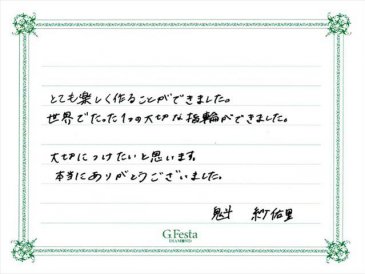 とても楽しく作ることができました。
世界でたった1つの大切な指輪ができました。
大切につけたいと思います。
本当にありがとうございました。
魁 紗佑里
G.Festa
DIAMOND